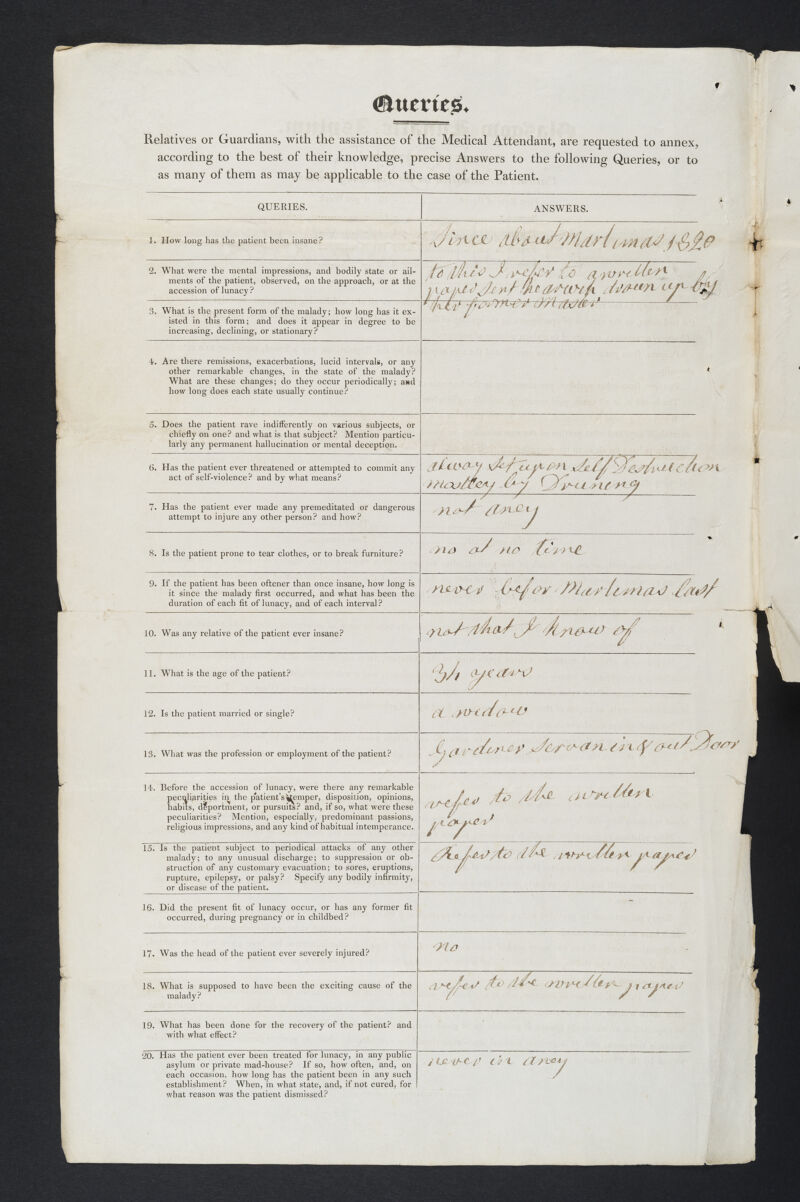 Queries.
Relatives or Guardians, with the assistance of the Medical Attendant, are requested to annex,
according to the best of their knowledge, precise Answers to the following Queries, or to
as many of them as may be applicable to the case of the Patient.
QUERIES.
ANSWERS.
1. How long has the patient been insane?
Since about Martimas 1820
2. What were the mental impressions, and bodily state or ail-
ments of the patient, observed, on the approach, or at the
accession of lunacy?
to this I refer to a written
paper sent hearwih drawn up by
her former Master
3. What is the present form of the malady; how long has it ex-
isted in this form; and does it appear in degree to be
increasing, declining, or stationary?
4. Are there remissions, exacerbations, lucid intervals, or any
other remarkable changes, in the state of the malady?
What are these changes; do they occur periodically; and
how long does each state usually continue?
5. Does the patient rave indifferently on various subjects, or
chiefly on one? and what is that subject? Mention particu-
larly any permanent hallucination or mental deception.
6. Has the patient ever threatened or attempted to commit any
act of self-violence? and by what means?
alway Set upon Self Destruction
mostley by Druning
7. Has the patient ever made any premeditated or dangerous
attempt to injure any other person? and how?
not aney
8. Is the patient prone to tear clothes, or to break furniture?
no at no time
9. If the patient has been oftener than once insane, how long is
it since the malady first occurred, and what has been the
duration of each fit of lunacy, and of each interval?
never befor Martimas last
10. Was any relative of the patient ever insane?
not that I know of
11. What is the age of the patient?
34 years
12. Is the patient married or single?
a wedow
13. What was the profession or employment of the patient?
Gardener Servan in & out Door
14. Before the accession of lunacy, were there any remarkable
peculiarities in the patient's temper, disposition, opinions,
habits, deportment, or pursuits? and, if so, what were these
peculiarities? Mention, especially, predominant passions,
religious impressions, and any kind of habitual intemperance.
refer to the written
paper
15. Is the patient subject to periodical attacks of any other
malady; to any unusual discharge; to suppression or ob-
struction of any customary evacuation; to sores, eruptions,
rupture, epilepsy, or palsy? Specify any bodily infirmity,
or disease of the patient.
Refer to the written paper
16. Did the present fit of lunacy occur, or has any former fit
occurred, during pregnancy or in childbed?
17. Was the head of the patient ever severely injured?
no
18. What is supposed to have been the exciting cause of the
malady?
refer to the written paper
19. What has been done for the recovery of the patient? and
with what effect?
20. Has the patient ever been treated for lunacy, in any public
asylum or private mad-house? If so, how often, and, on
each occasion, how long has the patient been in any such
establishment? When, in what state, and, if not cured, for
what reason was the patient dismissed?
never in aney